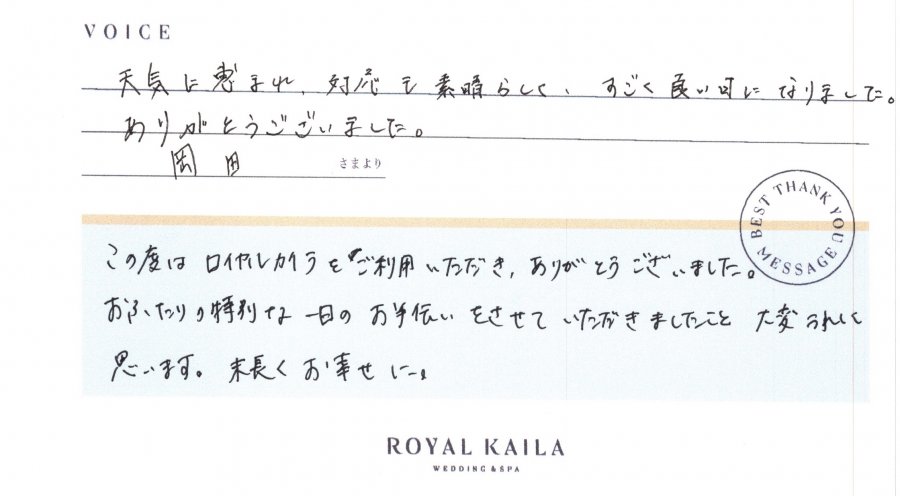 VOICE
天気に恵まれ、対応も素晴らしく、すごく良い日になりました。
ありがとうございました。
岡田 さまより
BEST THANK YOU MESSAGE
この度はロイヤルカイラをご利用いただき、ありがとうございました。
おふたりの特別な一日のお手伝いをさせていただきましたこと大変うれしく
思います。末長くお幸せに。
ROYAL KAILA
WEDDING & SPA